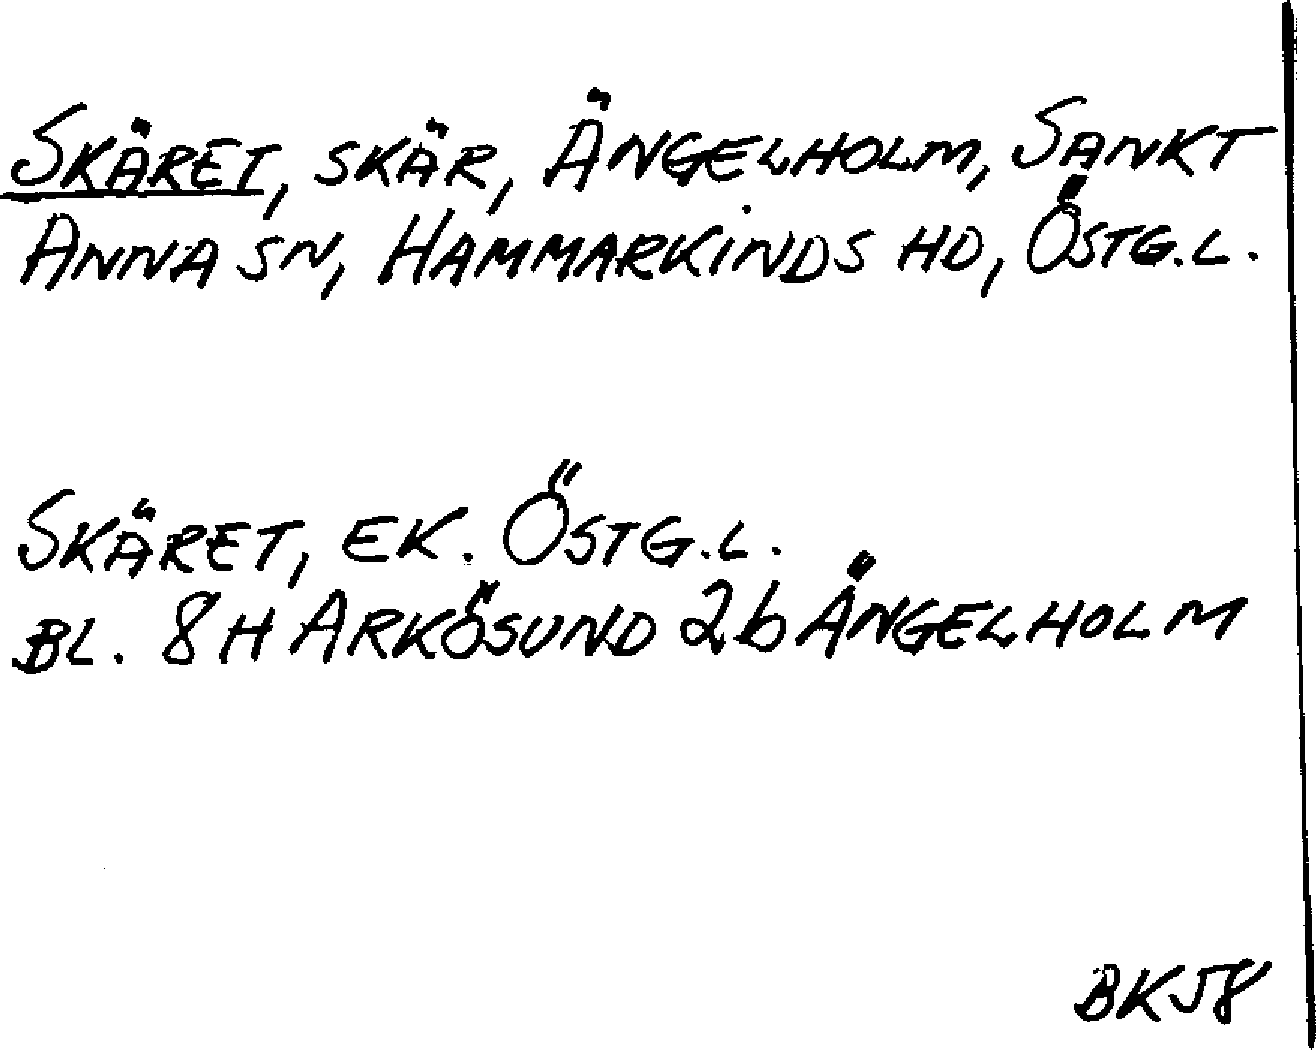 SKÄRET, SKÄR, ÄNGELHOLM, SANKT
ANNA SN, HAMMARKINDS HD, ÖSTG.L.
SKÄRET, EK. ÖSTG.L.
BL. 8H ARKÖSUND 2b ÄNGELHOLM
BKJ8